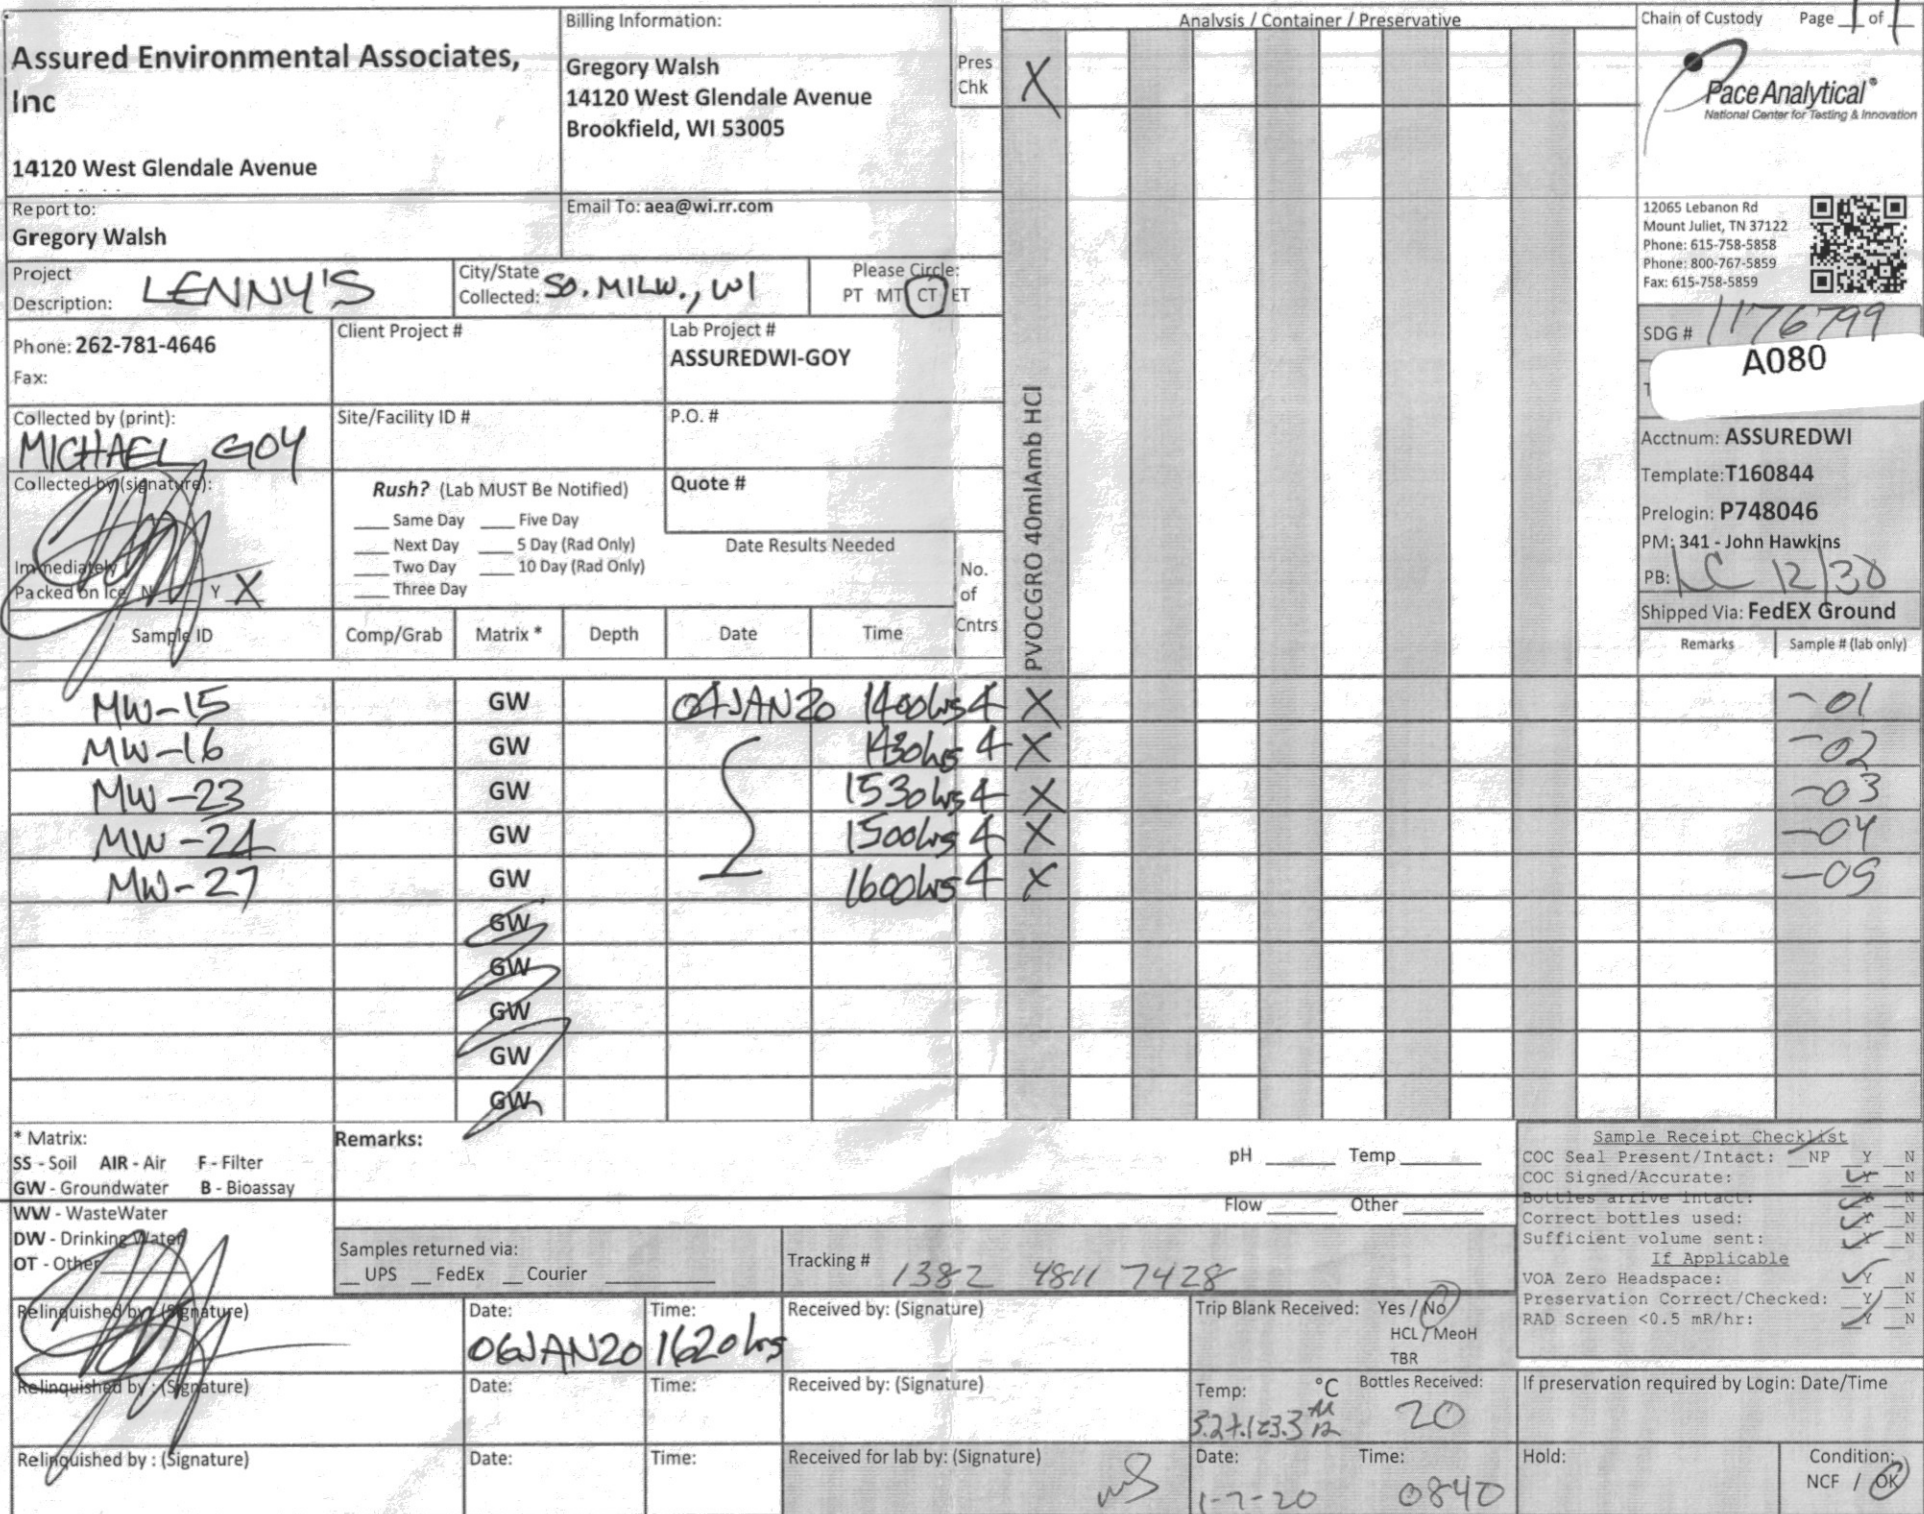 Assured Environmental Associates,
Inc
14120 West Glendale Avenue
Billing Information:
Gregory Walsh
14120 West Glendale Avenue
Brookfield, WI 53005
Pres
Chk X
Analysis / Container / Preservative
Chain of Custody Page 1 of 1
Pace Analytical®
National Center for Testing & Innovation
Report to:
Gregory Walsh
Email To: aea@wi.rr.com
12065 Lebanon Rd
Mount Juliet, TN 37122
Phone: 615-758-5858
Phone: 800-767-5859
Fax: 615-758-5859
Project
Description: LENNY'S
City/State
Collected: SO. MILW., WI
Please Circle:
PT MT CT ET
Phone: 262-781-4646
Fax:
Client Project #
Lab Project #
ASSUREDWI-GOY
SDG # 1176799
A080
Collected by (print):
MICHAEL GOY
Site/Facility ID #
P.O. #
Acctnum: ASSUREDWI
Template: T160844
Prelogin: P748046
PM: 341 - John Hawkins
PB: 12/30
Shipped Via: FedEX Ground
Collected by (signature):
Immediately
Packed on Ice N Y X
Rush? (Lab MUST Be Notified)
Same Day Five Day
Next Day 5 Day (Rad Only)
Two Day 10 Day (Rad Only)
Three Day
Quote #
Date Results Needed
No.
of
Cntrs
PVOCGRO 40mlAmb HCl
Sample ID Comp/Grab Matrix * Depth Date Time Remarks Sample # (lab only)
MW-15 GW 04JAN20 1400hrs 4 X -01
MW-16 GW 1430hrs 4 X -02
MW-23 GW 1530hrs 4 X -03
MW-24 GW 1500hrs 4 X -04
MW-27 GW 1600hrs 4 X -05
GW
GW
GW
GW
GW
* Matrix:
SS - Soil AIR - Air F - Filter
GW - Groundwater B - Bioassay
WW - WasteWater
DW - Drinking Water
OT - Other
Remarks:
pH Temp
Flow Other
Samples returned via:
UPS FedEx Courier
Tracking # 1382 4811 7428
Sample Receipt Checklist
COC Seal Present/Intact: NP Y N
COC Signed/Accurate: Y N
Bottles arrive intact: Y N
Correct bottles used: Y N
Sufficient volume sent: Y N
If Applicable
VOA Zero Headspace: Y N
Preservation Correct/Checked: Y N
RAD Screen <0.5 mR/hr: Y N
Relinquished by : (Signature)
Date:
06JAN20
Time:
1620hrs
Received by: (Signature)
Trip Blank Received: Yes / No
HCL / MeoH
TBR
Relinquished by : (Signature)
Date:
Time:
Received by: (Signature)
Temp: °C
Bottles Received:
20
If preservation required by Login: Date/Time
Relinquished by : (Signature)
Date:
Time:
Received for lab by: (Signature)
Date:
1-7-20
Time:
0840
Hold:
Condition:
NCF / OK